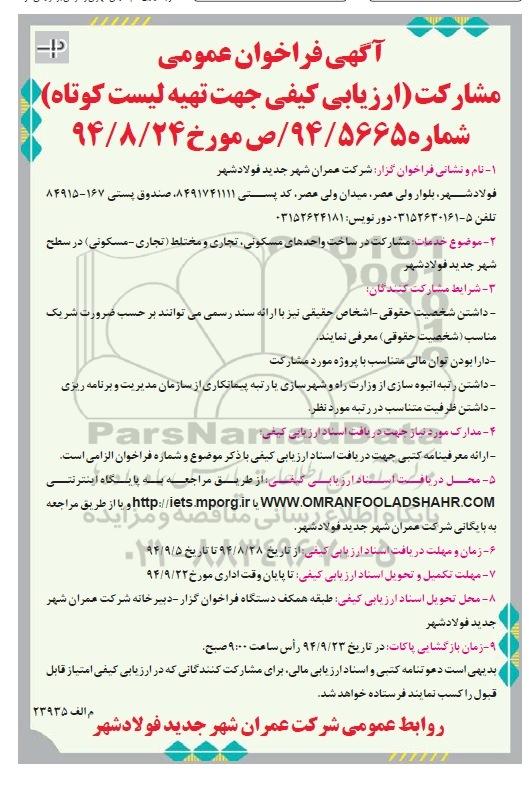 آگهی فراخوان عمومی
مشارکت (ارزیابی کیفی جهت تهیه لیست کوتاه)
شماره ۹۴/۵۶۶۵/ص مورخ ۹۴/۸/۲۴
۱- نام و نشانی فراخوان گزار: شرکت عمران شهر جدید فولادشهر
فولادشهر، بلوار ولی عصر، میدان ولی عصر، کد پستی ۸۴۹۱۷۴۱۱۱۱، صندوق پستی ۱۶۷-۸۴۹۱۵
تلفن ۵-۰۳۱۵۲۶۳۰۱۶۱ دورنویس: ۰۳۱۵۲۶۲۴۱۸۱
۲- موضوع خدمات: مشارکت در ساخت واحدهای مسکونی، تجاری و مختلط (تجاری-مسکونی) در سطح
شهر جدید فولادشهر
۳- شرایط مشارکت کنندگان:
- داشتن شخصیت حقوقی-اشخاص حقیقی نیز با ارائه سند رسمی می توانند بر حسب ضرورت شریک
مناسب (شخصیت حقوقی) معرفی نمایند.
-دارا بودن توان مالی متناسب با پروژه مورد مشارکت
- داشتن رتبه انبوه سازی از وزارت راه و شهرسازی یا رتبه پیمانکاری از سازمان مدیریت و برنامه ریزی
- داشتن ظرفیت متناسب در رتبه مورد نظر.
۴- مدارک مورد نیاز جهت دریافت اسناد ارزیابی کیفی:
-ارائه معرفینامه کتبی جهت دریافت اسناد ارزیابی کیفی با ذکر موضوع و شماره فراخوان الزامی است.
۵- محل دریافت اسناد ارزیابی کیفی: از طریق مراجعه به پایگاه اینترنتی
WWW.OMRANFOOLADSHAHR.COM یا http://iets.mporg.ir و یا از طریق مراجعه
به بایگانی شرکت عمران شهر جدید فولادشهر.
۶- زمان و مهلت دریافت اسناد ارزیابی کیفی: از تاریخ ۹۴/۸/۲۸ تا تاریخ ۹۴/۹/۵
۷- مهلت تکمیل و تحویل اسناد ارزیابی کیفی: تا پایان وقت اداری مورخ ۹۴/۹/۲۲
۸- محل تحویل اسناد ارزیابی کیفی: طبقه همکف دستگاه فراخوان گزار -دبیرخانه شرکت عمران شهر
جدید فولادشهر
۹-زمان بازگشایی پاکات: در تاریخ ۹۴/۹/۲۳ رأس ساعت ۹:۰۰ صبح.
بدیهی است دعوتنامه کتبی و اسناد ارزیابی مالی، برای مشارکت کنندگانی که در ارزیابی کیفی امتیاز قابل
قبول را کسب نمایند فرستاده خواهد شد.
م الف ۲۳۹۳۵
روابط عمومی شرکت عمران شهر جدید فولادشهر
ParsNamadData
پایگاه اطلاع رسانی مناقصه و مزایده
۰۲۱-۸۸۳۴۹۶۷۰-۵